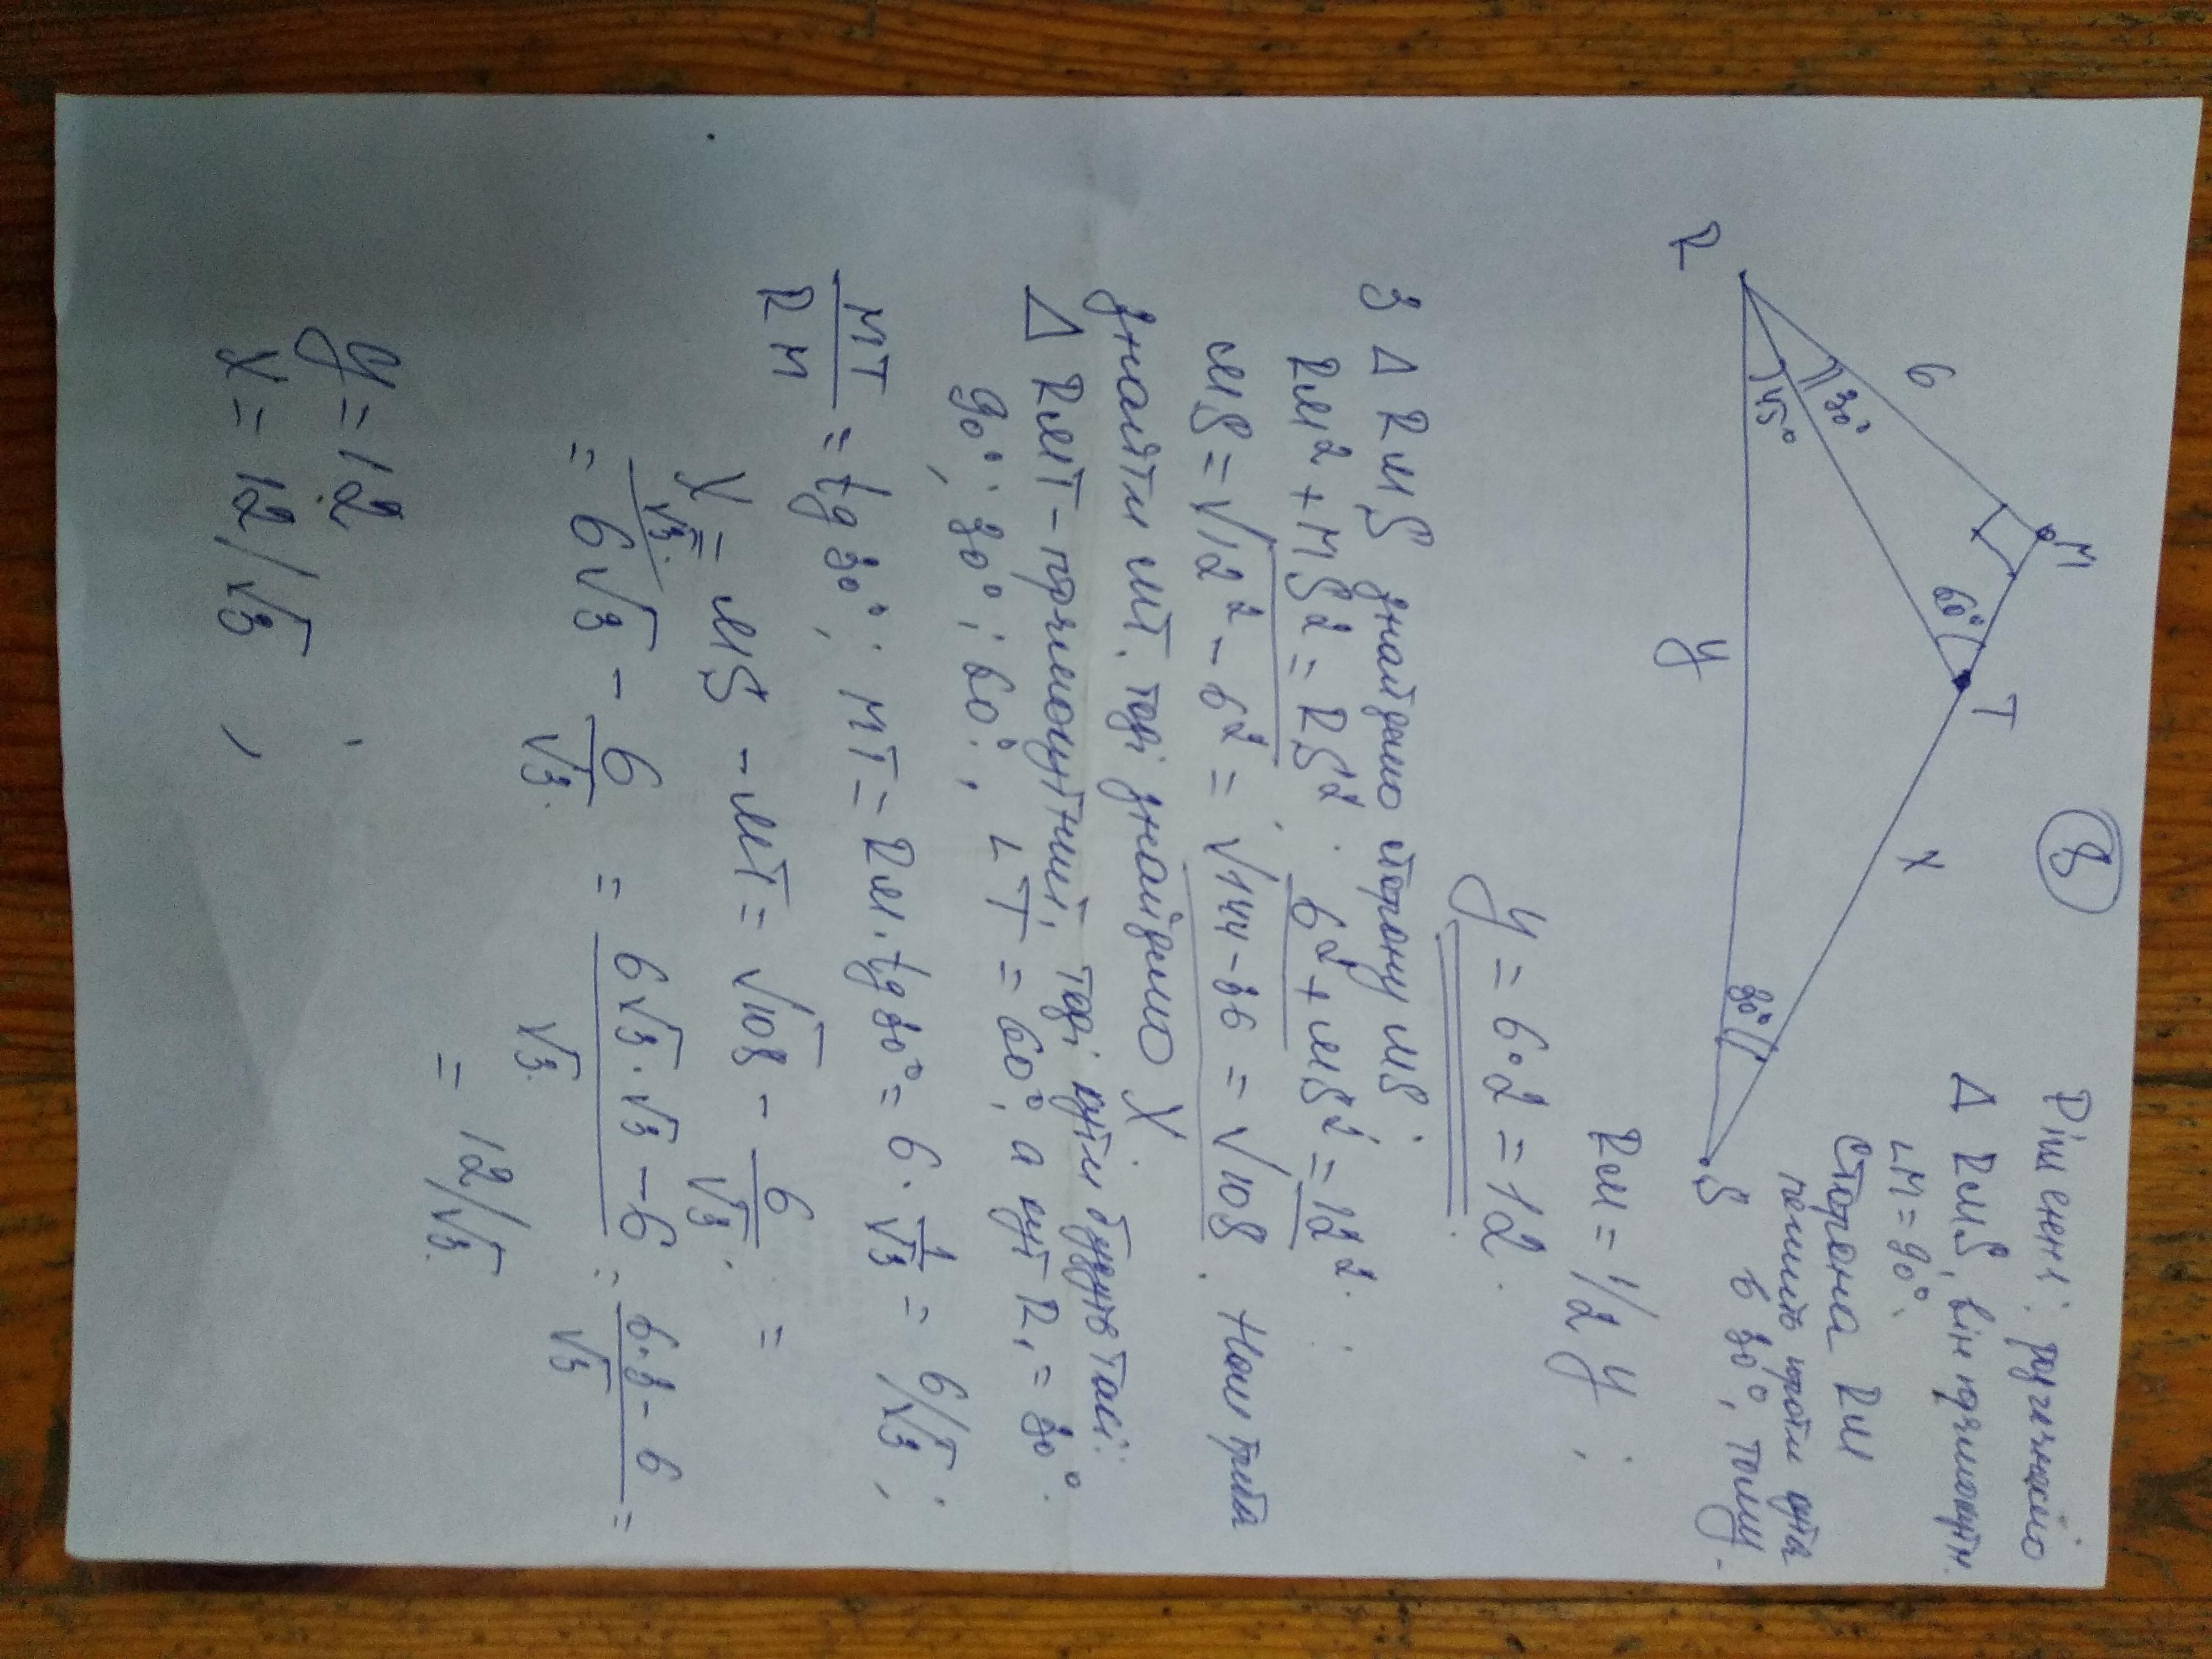 8
Рішенні: розглянемо
Δ RMS, він прямокутн.
∠M = 90°.
Сторона RM
лежить проти кута
в 30°, тому.
6
M
30°
45°
60°
T
X
R
y
30°
S
RM = 1/2 y;
y = 6·2 = 12.
З Δ RMS знайдемо сторону MS
RM² + MS² = RS². 6² + MS² = 12².
MS = √12² - 6² = √144-36 = √108. Нам треба
знайти MT. тоді знайдемо X
Δ RMT - прямокутний, тоді кути будуть такі:
90°; 30°; 60°, ∠T = 60°, а кут R₁ = 30°.
MT/RM = tg 30°; MT = RM·tg 30° = 6·1/√3 = 6/√3;
X = MS - MT = √108 - 6/√3 =
= 6√3 - 6/√3 = 6√3·√3-6/√3 = 6·3-6/√3 =
= 12/√3.
y = 12
X = 12/√3